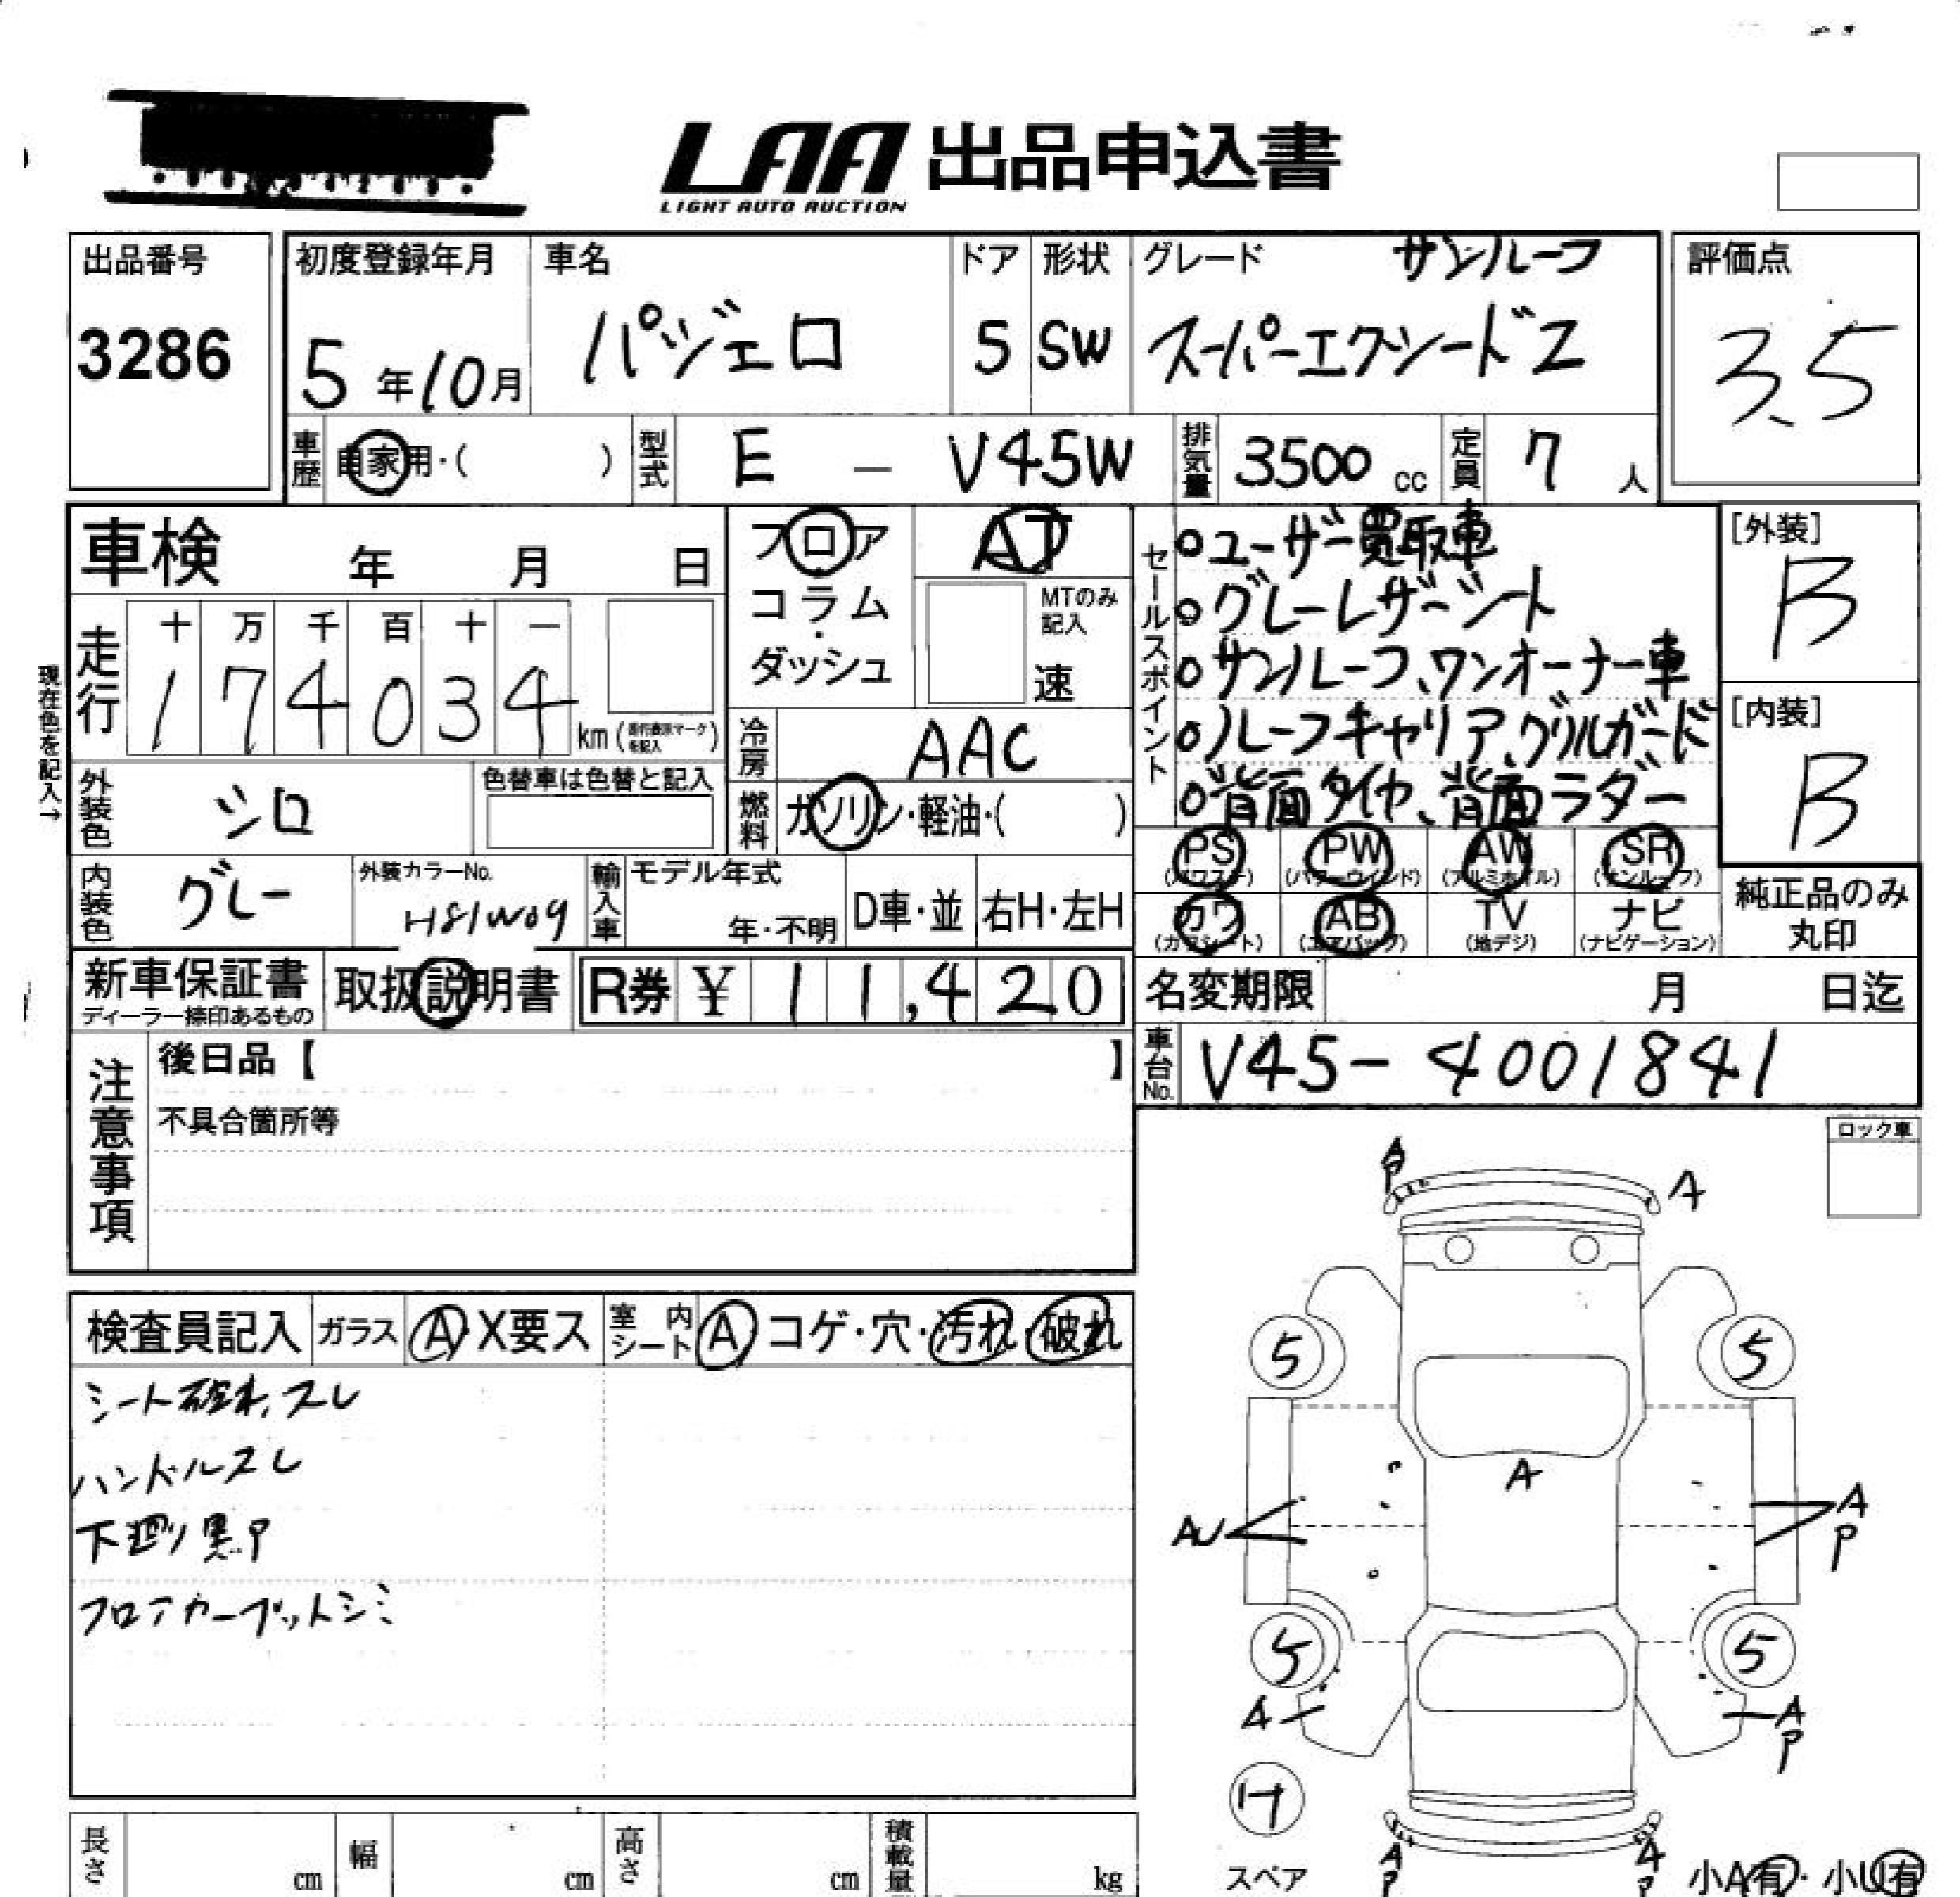 LAA 出品申込書
LIGHT AUTO AUCTION
出品番号
3286
初度登録年月
5年10月
車名
パジェロ
ドア
5
形状
SW
グレード サンルーフ
スーパーエクシードZ
評価点
3.5
車歴 自家用・( )
型式 E － V45W
排気量 3500 cc
定員 7 人
車検 年 月 日
フロア
コラム
・
ダッシュ
AT
MTのみ
記入
速
現在色を記入→
走行
十 万 千 百 十 一
1 7 4 0 3 4 km
冷房 AAC
外装色 シロ
色替車は色替と記入
燃料 ガソリン・軽油・( )
内装色 グレー
外装カラーNo.
H81W09
輸入車
モデル年式
年・不明
D車・並
右H・左H
セールスポイント
○ユーザー買取車
○グレーレザーシート
○サンルーフ、ワンオーナー車
○ルーフキャリア、グリルガード
○背面タイヤ、背面ラダー
[外装]
B
[内装]
B
PS
(パワステ)
PW
(パワーウインド)
AW
(アルミホイル)
SR
(サンルーフ)
カワ
(カワシート)
AB
(エアバック)
TV
(地デジ)
ナビ
(ナビゲーション)
純正品のみ
丸印
新車保証書
ディーラー捺印あるもの
取扱説明書
R券 ¥ 11,420
名変期限 月 日迄
車台No. V45－4001841
注意事項
後日品【 】
不具合箇所等
ロック車
検査員記入
ガラス A・X要ス
室内シート A コゲ・穴・汚れ・破れ
シート破れ、スレ
ハンドルスレ
下廻り黒P
フロアカーペットシミ
A
P
A
5
5
A
AU
A
P
5
5
A
A
P
サ
スペア
A
P
A
P
小A有・小U有
長さ cm
幅 cm
高さ cm
積載量 kg